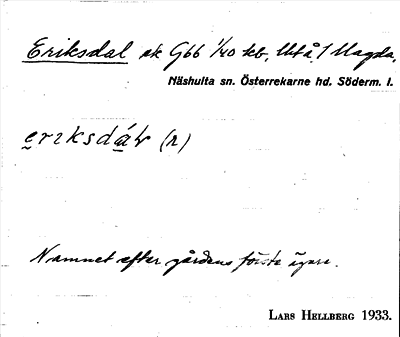 Eriksdal ek G66 1/40 kb, Utå, / Magda,
Näshulta sn. Österrekarne hd. Söderm. l.
eriksdál (n)
Namnet efter gårdens första ägare.
LARS HELLBERG 1933.